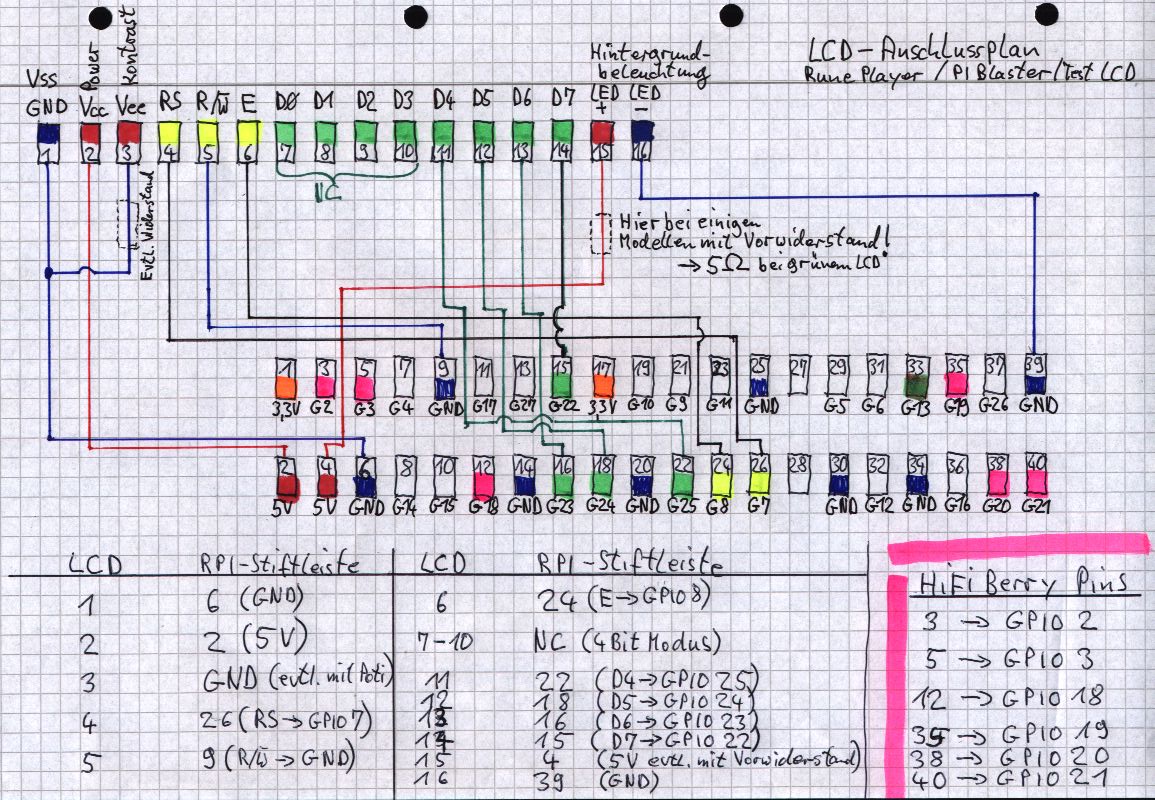 LCD-Anschlussplan
Rune Player / PI Blaster/Test LCD
Hintergrund-
beleuchtung
Vss
GND
Power
Vcc
Kontrast
Vee
RS
R/W̅
E
D0
D1
D2
D3
D4
D5
D6
D7
LED
+
LED
-
1 2 3 4 5 6 7 8 9 10 11 12 13 14 15 16
NC
Evtl. Widerstand
Hier bei einigen
Modellen mit Vorwiderstand!
→ 5Ω bei grünem LCD
1 3 5 7 9 11 13 15 17 19 21 23 25 27 29 31 33 35 37 39
3,3V G2 G3 G4 GND G17 G27 G22 3,3V G10 G9 G11 GND G5 G6 G13 G19 G26 GND
2 4 6 8 10 12 14 16 18 20 22 24 26 28 30 32 34 36 38 40
5V 5V GND G14 G15 G18 GND G23 G24 GND G25 G8 G7 GND G12 GND G16 G20 G21
LCD RPI-Stiftleiste
1 6 (GND)
2 2 (5V)
3 GND (evtl. mit Poti)
4 26 (RS→GPIO7)
5 9 (R/W̅→GND)
LCD RPI-Stiftleiste
6 24 (E→GPIO8)
7-10 NC (4Bit Modus)
11 22 (D4→GPIO 25)
12 18 (D5→GPIO 24)
13 16 (D6→GPIO 23)
14 15 (D7→GPIO 22)
15 4 (5V evtl. mit Vorwiderstand)
16 39 (GND)
HiFi Berry Pins
3 → GPIO 2
5 → GPIO 3
12 → GPIO 18
35 → GPIO 19
38 → GPIO 20
40 → GPIO 21